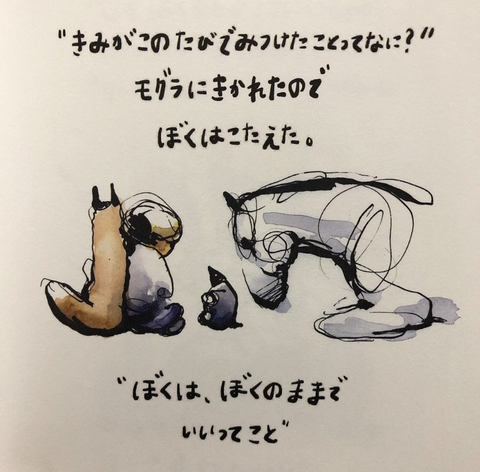 “きみがこのたびでみつけたことってなに？”
モグラにきかれたので
ぼくはこたえた。
“ぼくは、ぼくのままで
いいってこと”